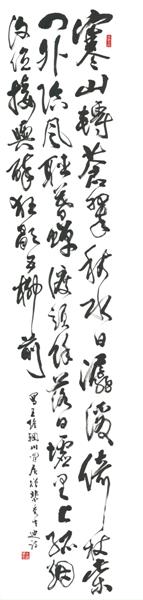 寒山轉蒼翠秋水日潺湲倚杖柴
門外臨風聽暮蟬渡頭餘落日墟里上孤烟
復值接輿醉狂歌五柳前
王維輞川閒居贈裴秀才迪詩